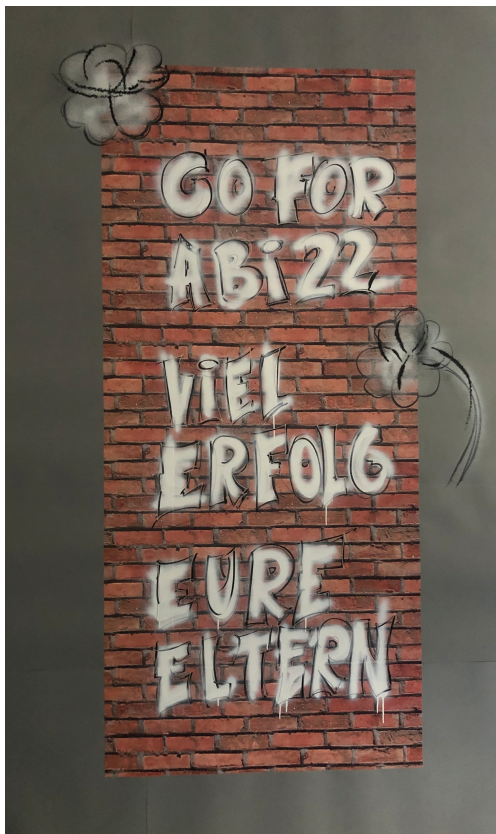 GO FOR
ABi 22
ViEL
ERFOLG
EURE
ELTERN